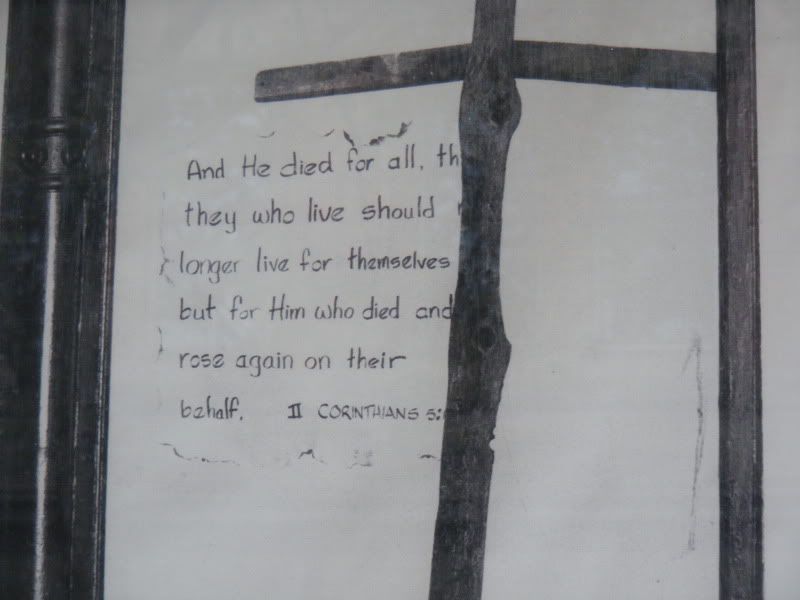 And He died for all, th
they who live should
longer live for themselves
but for Him who died and
rose again on their
behalf. II CORINTHIANS 5: